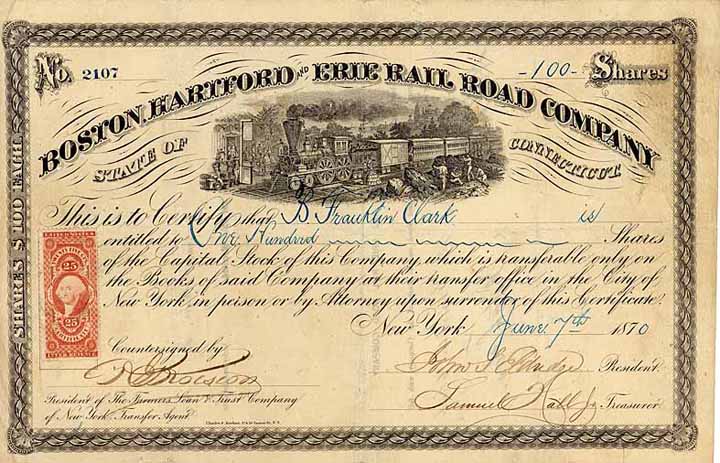 No. 2107 -100- Shares
BOSTON, HARTFORD AND ERIE RAIL ROAD COMPANY
STATE OF CONNECTICUT.
SHARES $100 EACH
This is to Certify that B Franklin Clark is
entitled to One Hundred Shares
of the Capital Stock of this Company, which is transferable only on
the Books of said Company at their transfer office in the City of
New York, in person or by Attorney upon surrender of this Certificate.
New York June 7th 1870
25
25
CERTIFICATE
Countersigned by
President of The Farmers Loan & Trust Company
of New York, Transfer Agent
John S. Eldridge President.
Samuel Hall Jr Treasurer.